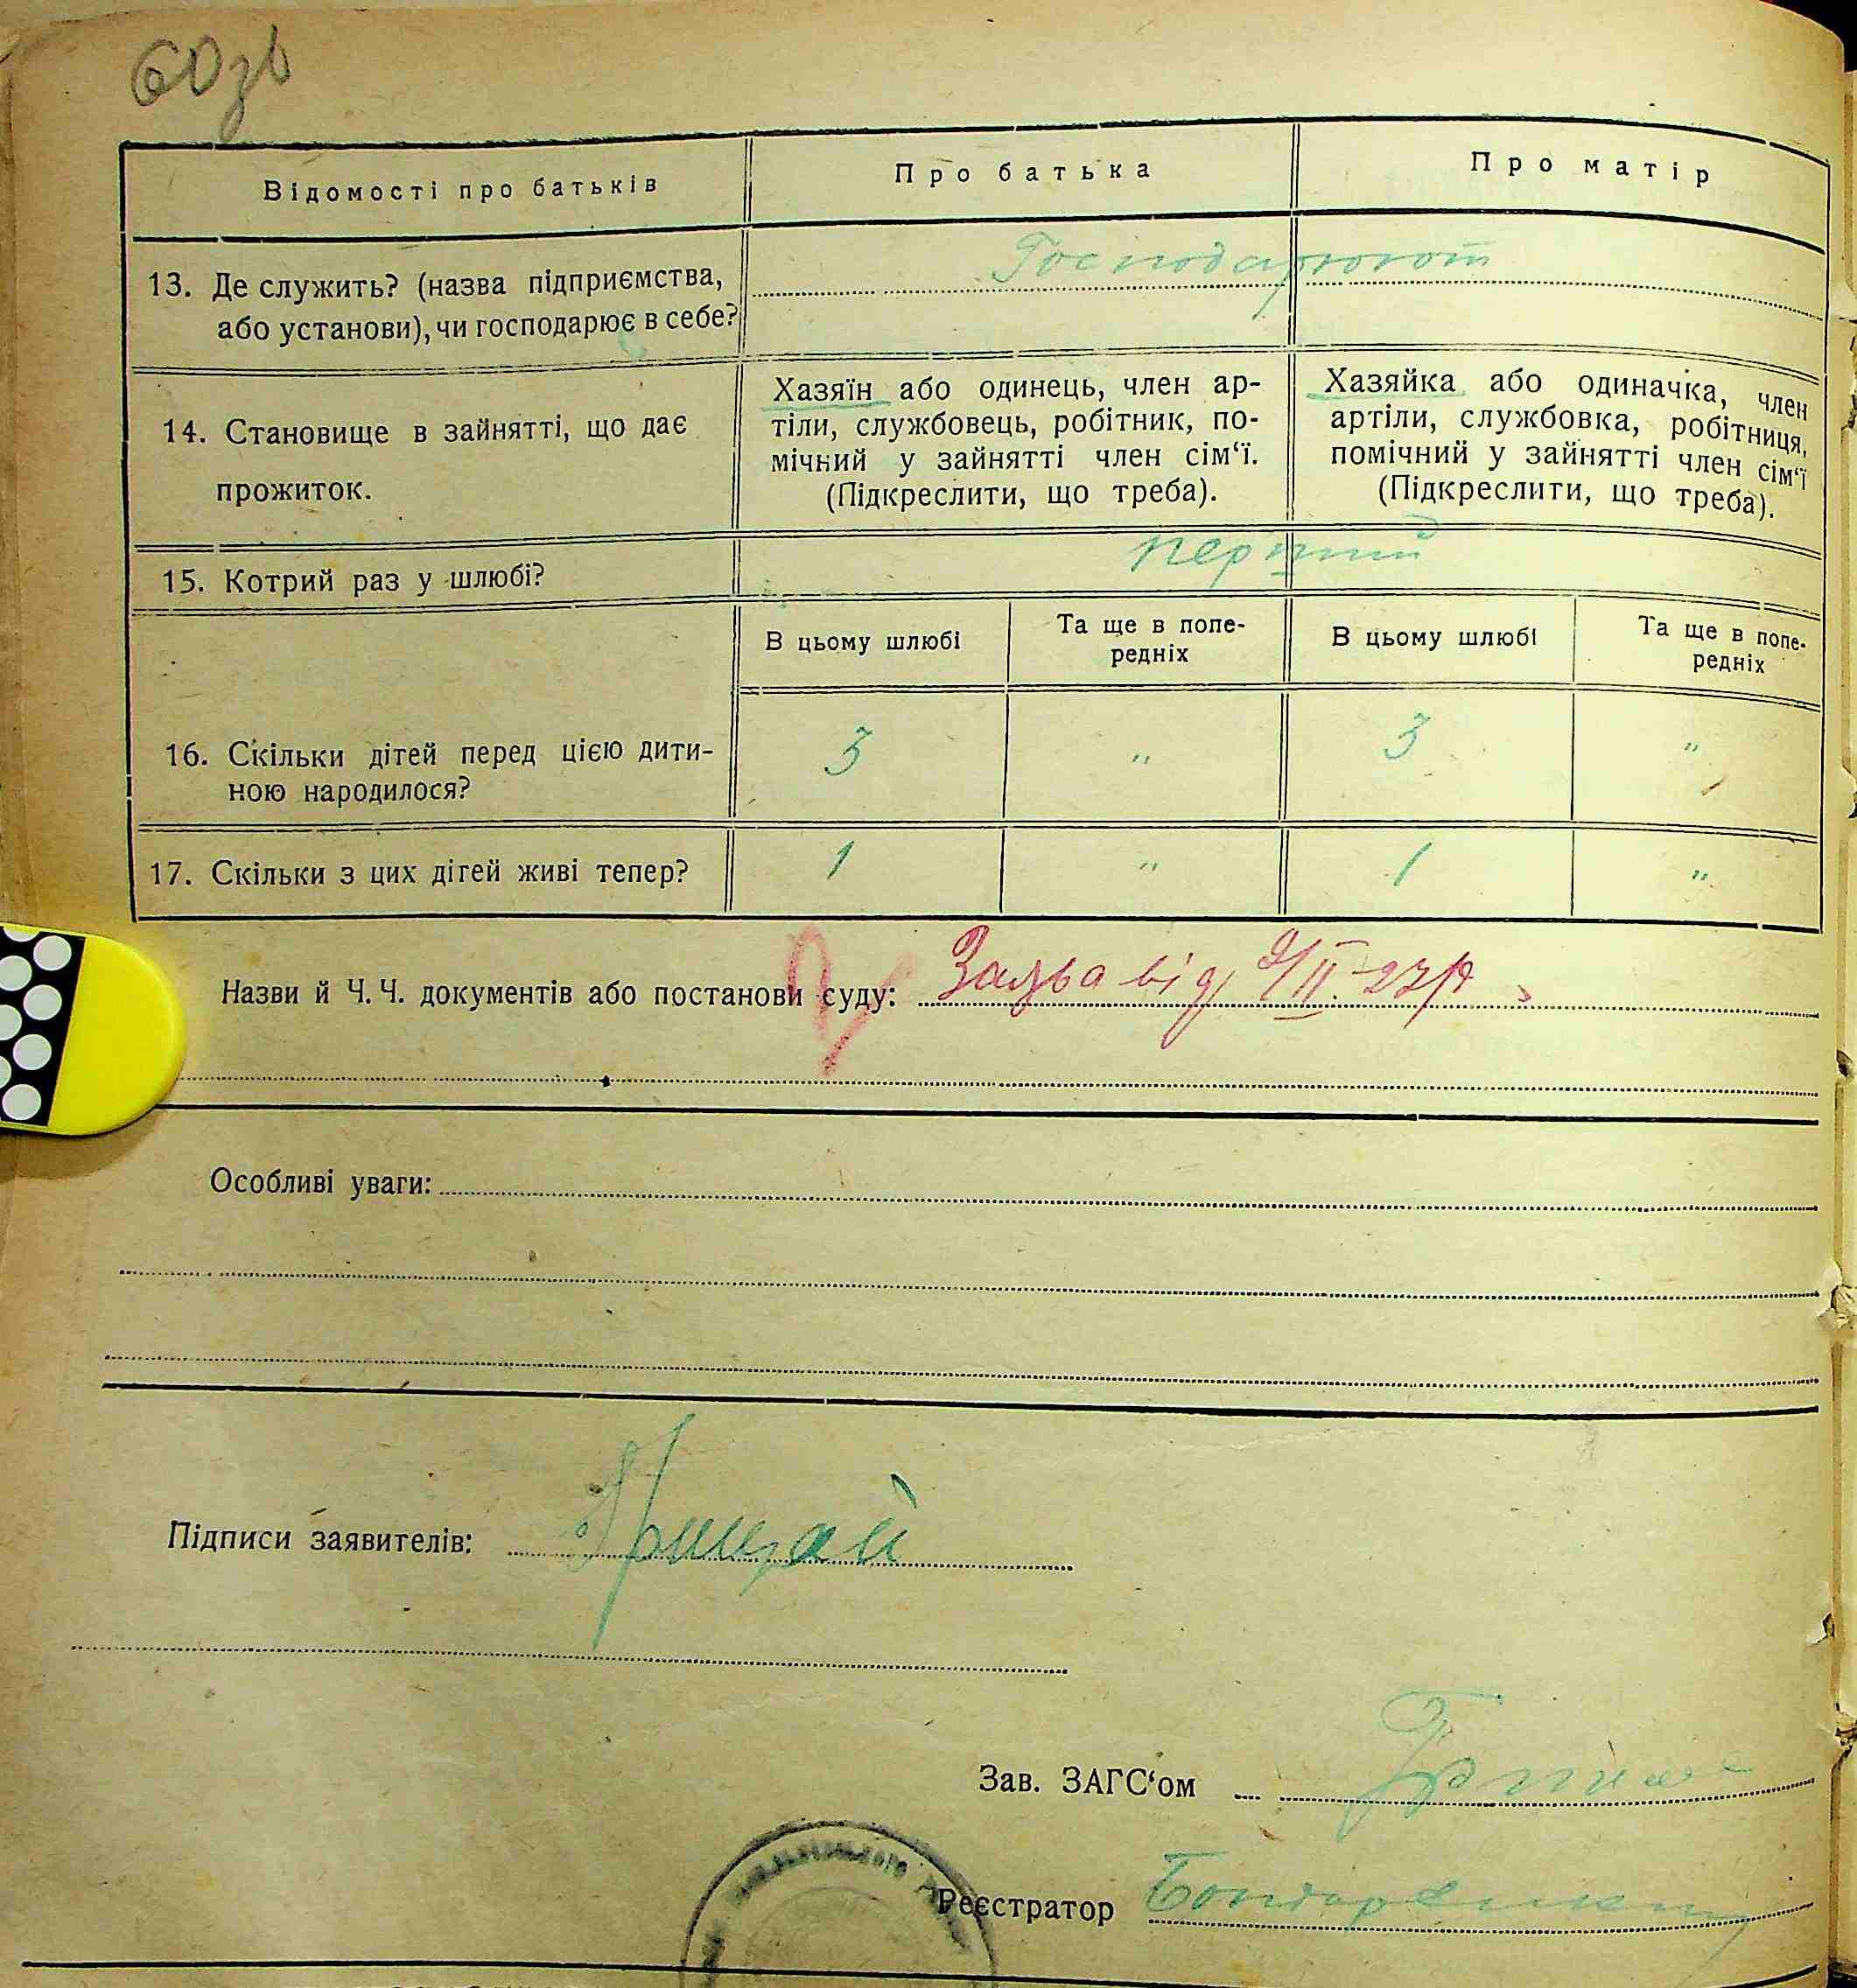 60зв
Відомості про батьків
Про батька
Про матір
13. Де служить? (назва підприємства,
або установи), чи господарює в себе?
Господарюют
14. Становище в зайнятті, що дає
прожиток.
Хазяїн або одинець, член ар-
тіли, службовець, робітник, по-
мічний у зайнятті член сім‘ї.
(Підкреслити, що треба).
Хазяйка або одиначка, член
артіли, службовка, робітниця,
помічний у зайнятті член сім‘ї
(Підкреслити, що треба).
15. Котрий раз у шлюбі?
перший
В цьому шлюбі
Та ще в попе-
редніх
В цьому шлюбі
Та ще в попе-
редніх
16. Скільки дітей перед цією дити-
ною народилося?
3 " 3 "
17. Скільки з цих дітей живі тепер?
1 " 1 "
Назви й Ч. Ч. документів або постанови суду: Заява від 9/II-27р.
Особливі уваги:
Підписи заявителів:
Зав. ЗАГС‘ом
Реєстратор